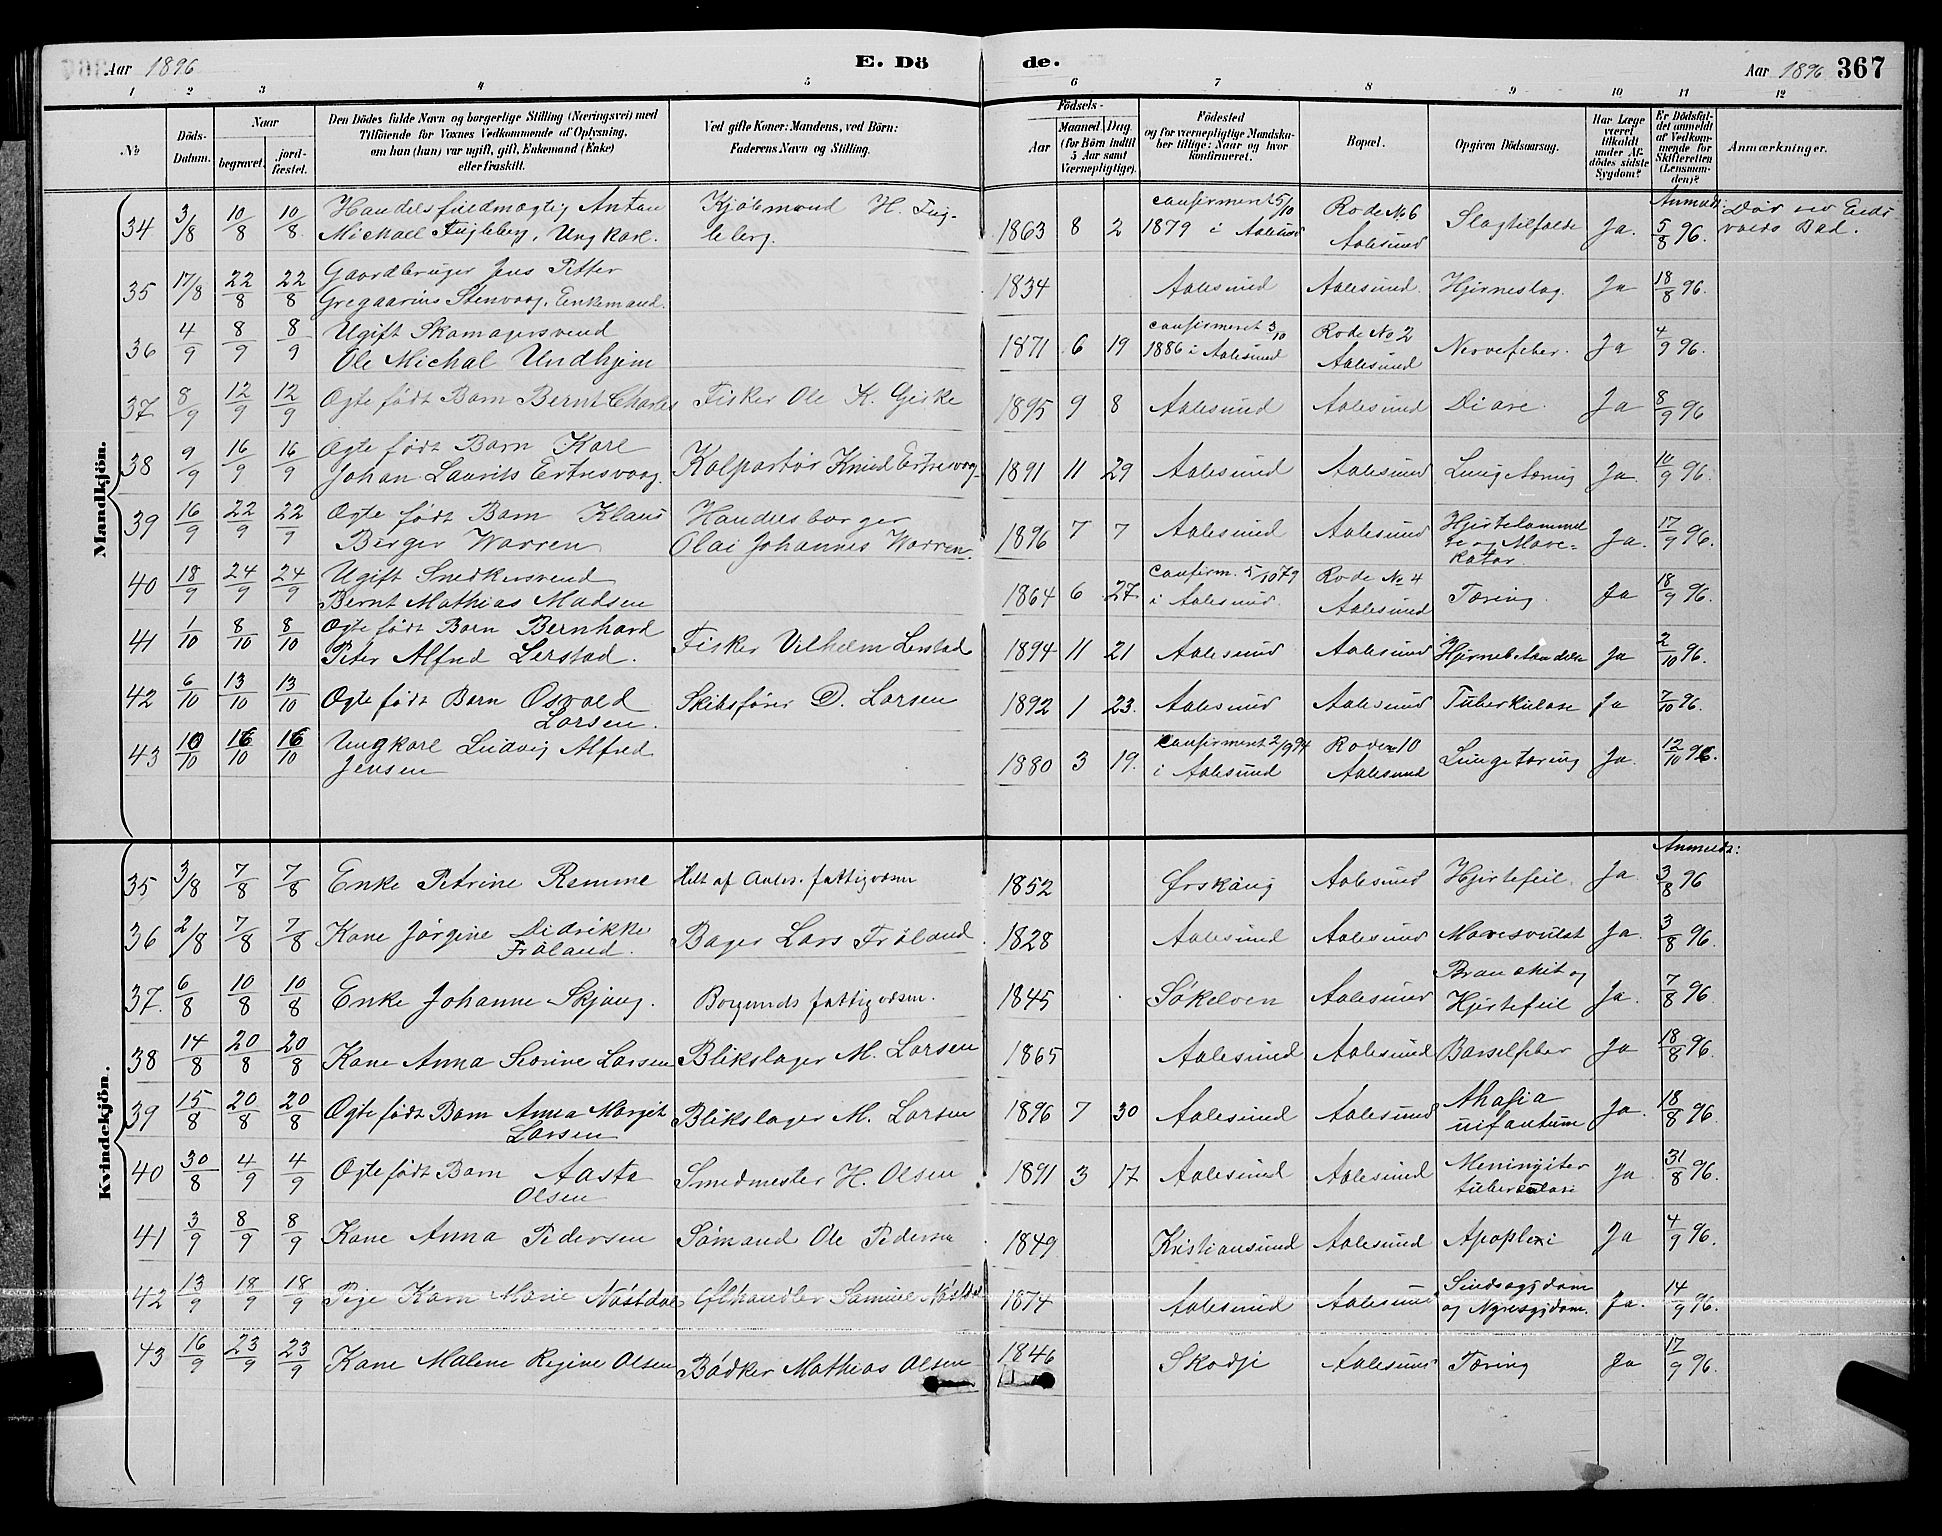 Aar 1896 E. Dö de. Aar 1896 367
1 2 3 4 5 6 7 8 9 10 11 12
No. Döds-Datum. Naar begravet. jordfæstet. Den Dödes fulde Navn og borgerlige Stilling (Næringsvei) med Tilföiende for Voxnes Vedkommende af Oplysning, om han (hun) var ugift, gift, Enkemand (Enke) eller fraskilt. Ved gifte Koner: Mandens, ved Börn: Faderens Navn og Stilling. Födsels- Aar Maaned Dag (for Börn indtil 5 Aar samt Værnepligtige). Födested og for værnepligtige Mandskaber tillige: Naar og hvor konfirmeret. Bopæl. Opgiven Dödsaarsag. Har Læge været tilkaldt under Afdödes sidste Sygdom? Er Dödsfaldet anmeldt af Vedkommende for Skifteretten (Lensmanden)? Anmærkninger.
Mandkjön.
34 3/8 10/8 10/8 Handelsfuldmægtig Anton Michael Fugleberg, Ungkarl. Kjøbmand H. Fugleberg. 1863 8 2 confirmeret 5/10 1879 i Aalesund Rode No 6 Aalesund Slagtilfælde Ja. Anmeldt: 5/8 96. Død ved Eidsvolds Bad.
35 17/8 22/8 22/8 Gaardbruger Jens Petter Gregaarius Stenvaag, Enkemand. 1834 Aalesund Aalesund. Hjerneslag. Ja 18/8 96.
36 4/9 8/9 8/9 Ugift Skomagersvend Ole Michal Undhjem 1871 6 19 confirmeret 3/10 1886 i Aalesund Rode No 2 Aalesund Nervefeber. Ja 4/9 96.
37 8/9 12/9 12/9 Ægte født Barn Bernt Charles Fisker Ole K. Giske 1895 9 8 Aalesund Aalesund Diare. Ja 8/9 96
38 9/9 16/9 16/9 Ægte født Barn Karl Johan Laurits Ertnesvaag. Kolportør Knud Ertnesvaag 1891 11 29 Aalesund Aalesund Lungetæring Ja. 10/9 96.
39 16/9 22/9 22/9 Ægte født Barn Klaus Berger Warren Handelsborger Olai Johannes Warren. 1896 7 7 Aalesund Aalesund Hjertelammelse og Mavekatar. Ja. 17/9 96.
40 18/9 24/9 24/9 Ugift Snedkersvend Bernt Mathias Madsen 1864 6 27. confirm. 5/10 79 i Aalesund. Rode No 4 Aalesund Tæring. Ja 18/9 96.
41 1/10 8/10 8/10 Ægte født Barn Bernhard Peter Alfred Lerstad. Fisker Vilhelm Lerstad 1894 11 21 Aalesund Aalesund Hjernebetændelse Ja 2/10 96.
42 6/10 13/10 13/10 Ægte født Barn Osvald Larsen. Skibsfører D. Larsen 1892 1 23. Aalesund Aalesund Tuberkulose Ja 7/10 96.
43 10/10 16/10 16/10 Ungkarl Ludvig Alfred Jensen 1880 3 19. confirmeret 2/9 94 i Aalesund Rode 10 Aalesund Lungetæring Ja. 12/10 96.
Kvindekjön.
35 3/8 7/8 7/8 Enke Petrine Remme Helt af Aales. fattigvæsen 1852 Ørskaug Aalesund Hjertefeil. Ja Anmeldt: 3/8 96
36 2/8 7/8 7/8 Kone Jørgine Didrikke Frøland. Bager Lars Frøland 1828 Aalesund Aalesund Mavesvulst Ja. 3/8 96.
37. 6/8 10/8 10/8 Enke Johanne Skjong. Borgunds fattigvæsen. 1845 Søkelven Aalesund Bronchit og Hjertefeil Ja. 7/8 96.
38 14/8 20/8 20/8 Kone Anna Severine Larsen Blikslager M. Larsen 1865 Aalesund Aalesund Barselfeber Ja 18/8 96.
39 15/8 20/8 20/8 Ægte født Barn Anna Margit Larsen Blikslager M. Larsen 1896 7 30 Aalesund Aalesund infantum Ja. 18/8 96.
40 30/8 4/9 4/9 Ægte født Barn Aasta Olsen Smedmester H. Olsen 1891 3 17 Aalesund Aalesund Meningiter tuberculosi Ja 31/8 96.
41 3/9 8/9 8/9 Kone Anna Pedersen Sømand Ole Pedersen 1849 Kristiansund Aalesund Apoplexi Ja 4/9 96.
42 13/9 18/9 18/9 Pige Karn Marie Nøstdal Ølhandler Samuel Nøstdal 1874 Aalesund Aalesund Sindssygdom og Nyresygdom. Ja. 14/9 96.
43 16/9 23/9 23/9 Kone Malene Regine Olsen Bødker Mathias Olsen 1846 Skodje Aalesund Tæring Ja 17/9 96.